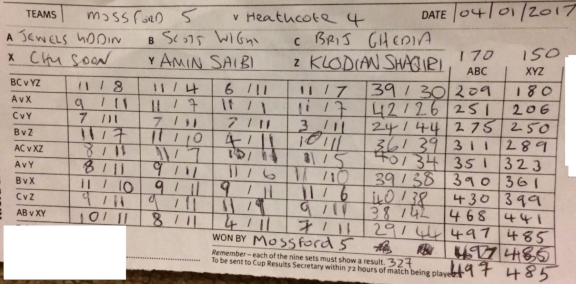 TEAMS MOSSFORD 5 v Heathcote 4 DATE 04/01/2017
A JEWELS B SCOTT C BRIJ GHEDIA
X CHU SOON Y AMIN SAIBI Z KLODIAN SHAQIRI 170 150
ABC XYZ
BCvYZ 11/8 11/4 6/11 11/7 39/30 209 180
AvX 9/11 11/7 11/1 11/7 42/26 251 206
CvY 7/11 7/11 7/11 3/11 24/44 275 250
BvZ 11/7 11/10 4/11 10/11 36/39 311 289
ACvXZ 8/11 11/7 /11 /5 40/34 351 323
AvY 8/11 9/11 11/6 11/10 39/38 390 361
BvX 11/10 9/11 9/11 11/6 40/38 430 399
CvZ 9/11 9/11 11/9 9/11 38/42 468 441
ABvXY 10/11 8/11 4/11 7/11 29/44 497 485
WON BY Mossford 5 497 485
Remember – each of the nine sets must show a result. 327
To be sent to Cup Results Secretary within 72 hours of match being played 497 485